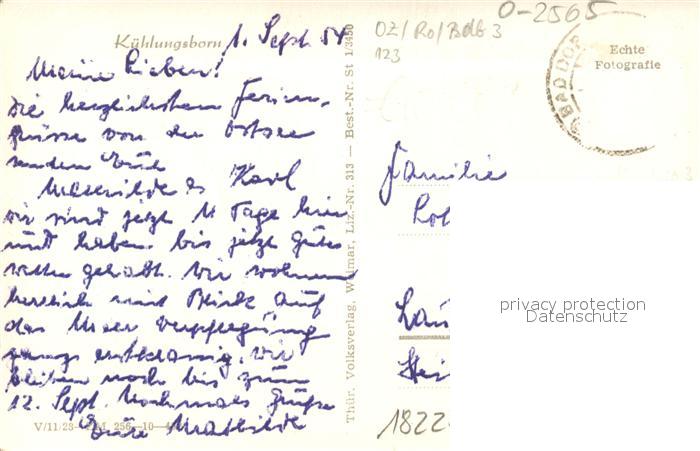 Kühlungsborn 1. Sept 54
Meine Lieben!
Die herzlichsten Ferien-
grüsse von der Ostsee
senden Euch
Mathilde & Karl
wir sind jetzt 11 Tage hier
und haben bis jetzt gutes
Wetter gehabt. Wir wohnen
herrlich mit Blick auf
das Meer Verpflegung
ganz erstklassig. Wir
bleiben noch bis zum
12. Sept. Nochmals Grüße
Eure Mathilde
V/11/28
256-10
Thür. Volksverlag, Weimar, Liz.-Nr. 313 — Best.-Nr. St 1/3450
O-2565
OZ/Ro/BdB 3
123
BAD DO
Echte
Fotografie
Familie
privacy protection
Datenschutz
1822